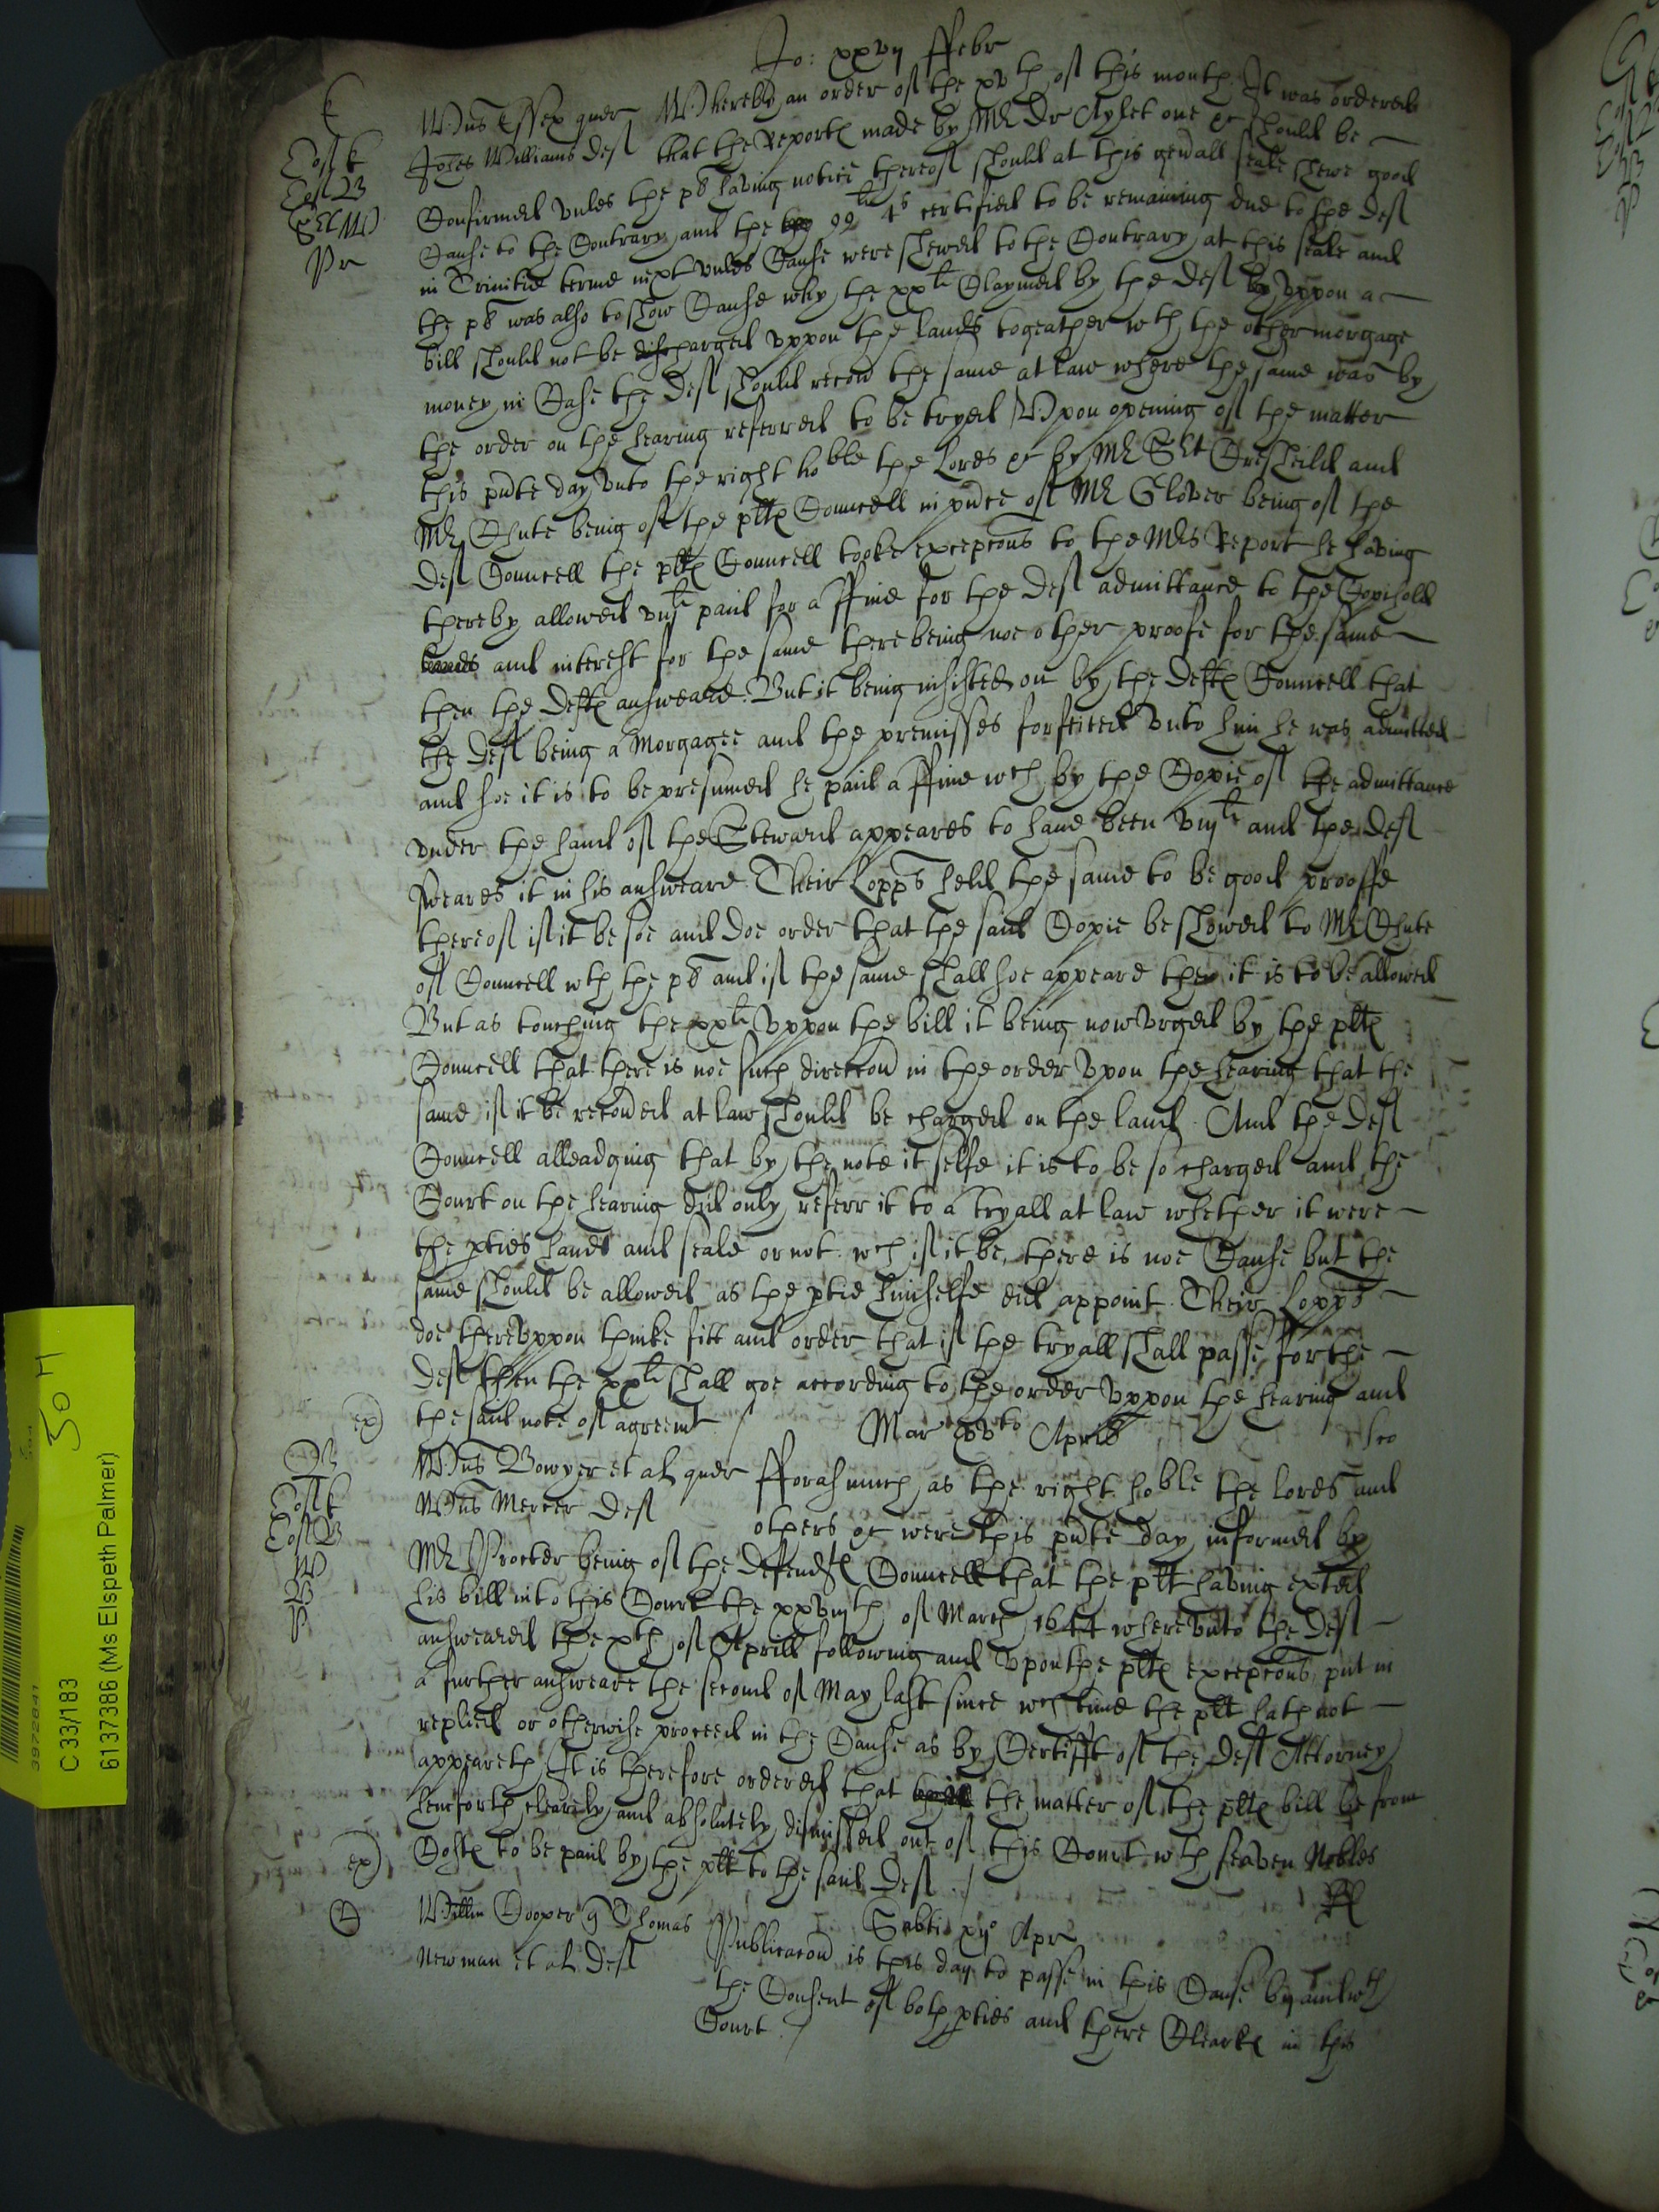 Jo: xxvij ffebr
E
Willms Essex quer Whereby an order of the xvth of this month It was ordered
Cos E
Johes Williams def that the Reporte made by Mr Dr Aylet one &c should be
Cos B
Confirmed vnles the pt having notice thereof should at this genall seale shewe good
Sel W
Cause to the Contrary and the 99li 4s certified to be remaining due to the def
Pr
in Trinitie terme next vnles Cause were shewed to the Contrary at this seale and
the pt was also to show Cause why the xxli Claymed by the def vppon a
bill should not be charged vppon the lands togeather wth the other morgage
money in Case the def should recov the same at law where the same was by
the order on the hearing referred to be tryed Vpon opening of the matter
this pnte day vnto the right hoble the Lords &c by Mr Sjt Cresheild and
Mr Chute being of the plts Councell in pnce of Mr Glover being of the
def Councell the plts Councell tooke excepcons to the Mrs Report he having
thereby allowed viijli paid for a ffine for the def admittance to the Copihold
lands and interest for the same there being noe other proofe for the same
then the defts answeare. But it being insisted on by the defts Councell that
the def being a Morgagee and the premisses forfeited vnto him he was admitted
and soe it is to be presumed he paid a ffine wch by the Copie of the admittance
vnder the hand of the Steward appeares to have been viijli and the def
sweares it in his answeare Their Lopps held the same to be good prooffe
thereof if it be soe and doe order that the said Copie be shewed to Mr Chute
of Councell wth the pt and if the same shall soe appeare then it is to be allowed
But as touching the xxli vppon the bill it being now vrged by the plts
Councell that there is noe such direccon in the order vpon the hearing that the
same if it be recoued at law should be charged on the land. And the def
Councell alleadging that by the note it selfe it is to be so charged and the
Court on the hearing did only referr it to a tryall at law whether it were
the pties hand and seale or not. wch if it be, there is noe Cause but the
same should be allowed as the ptie himselfe did appoint. Their Lopps
doe therevppon thinke fitt and order that if the tryall shall passe for the
def then the xxli shall goe according to the order vppon the hearing and
ex)
the said note of agreemt /
Mar xvto Aprilis
B
Willms Bowyer et al quer fforasmuch as the right hoble the lords and
Cos E
Willms Mercer def others &c were this pnte day informed by
Cos B
Mr Procter being of the defendts Councell that the plt having exhted
W
his bill into this Court the xxviijth of March 1644 wherevnto the def
B
answeared the xth of Aprill following and vpon the plts excepcons put in
P
a further answeare the second of May last since wch time the plt hath not
replied or otherwise proceed in the Cause as by Certifft of the def Attorney
appeareth, It is therefore ordered that the matter of the plts bill be from
henceforth clearely and absolutely dismissed out of this Court wth seaven Nobles
ex)
Costs to be paid by the plt to the said def ./
Sabti xijo Apr
C
Willm Cooper q Thomas Publicacon is this day to passe in this Cause by and wth
Newman et al def the Consent of both pties and there Clearks in this
Court /
50 H
3972841
C 33/183
6137386 (Ms Elspeth Palmer)